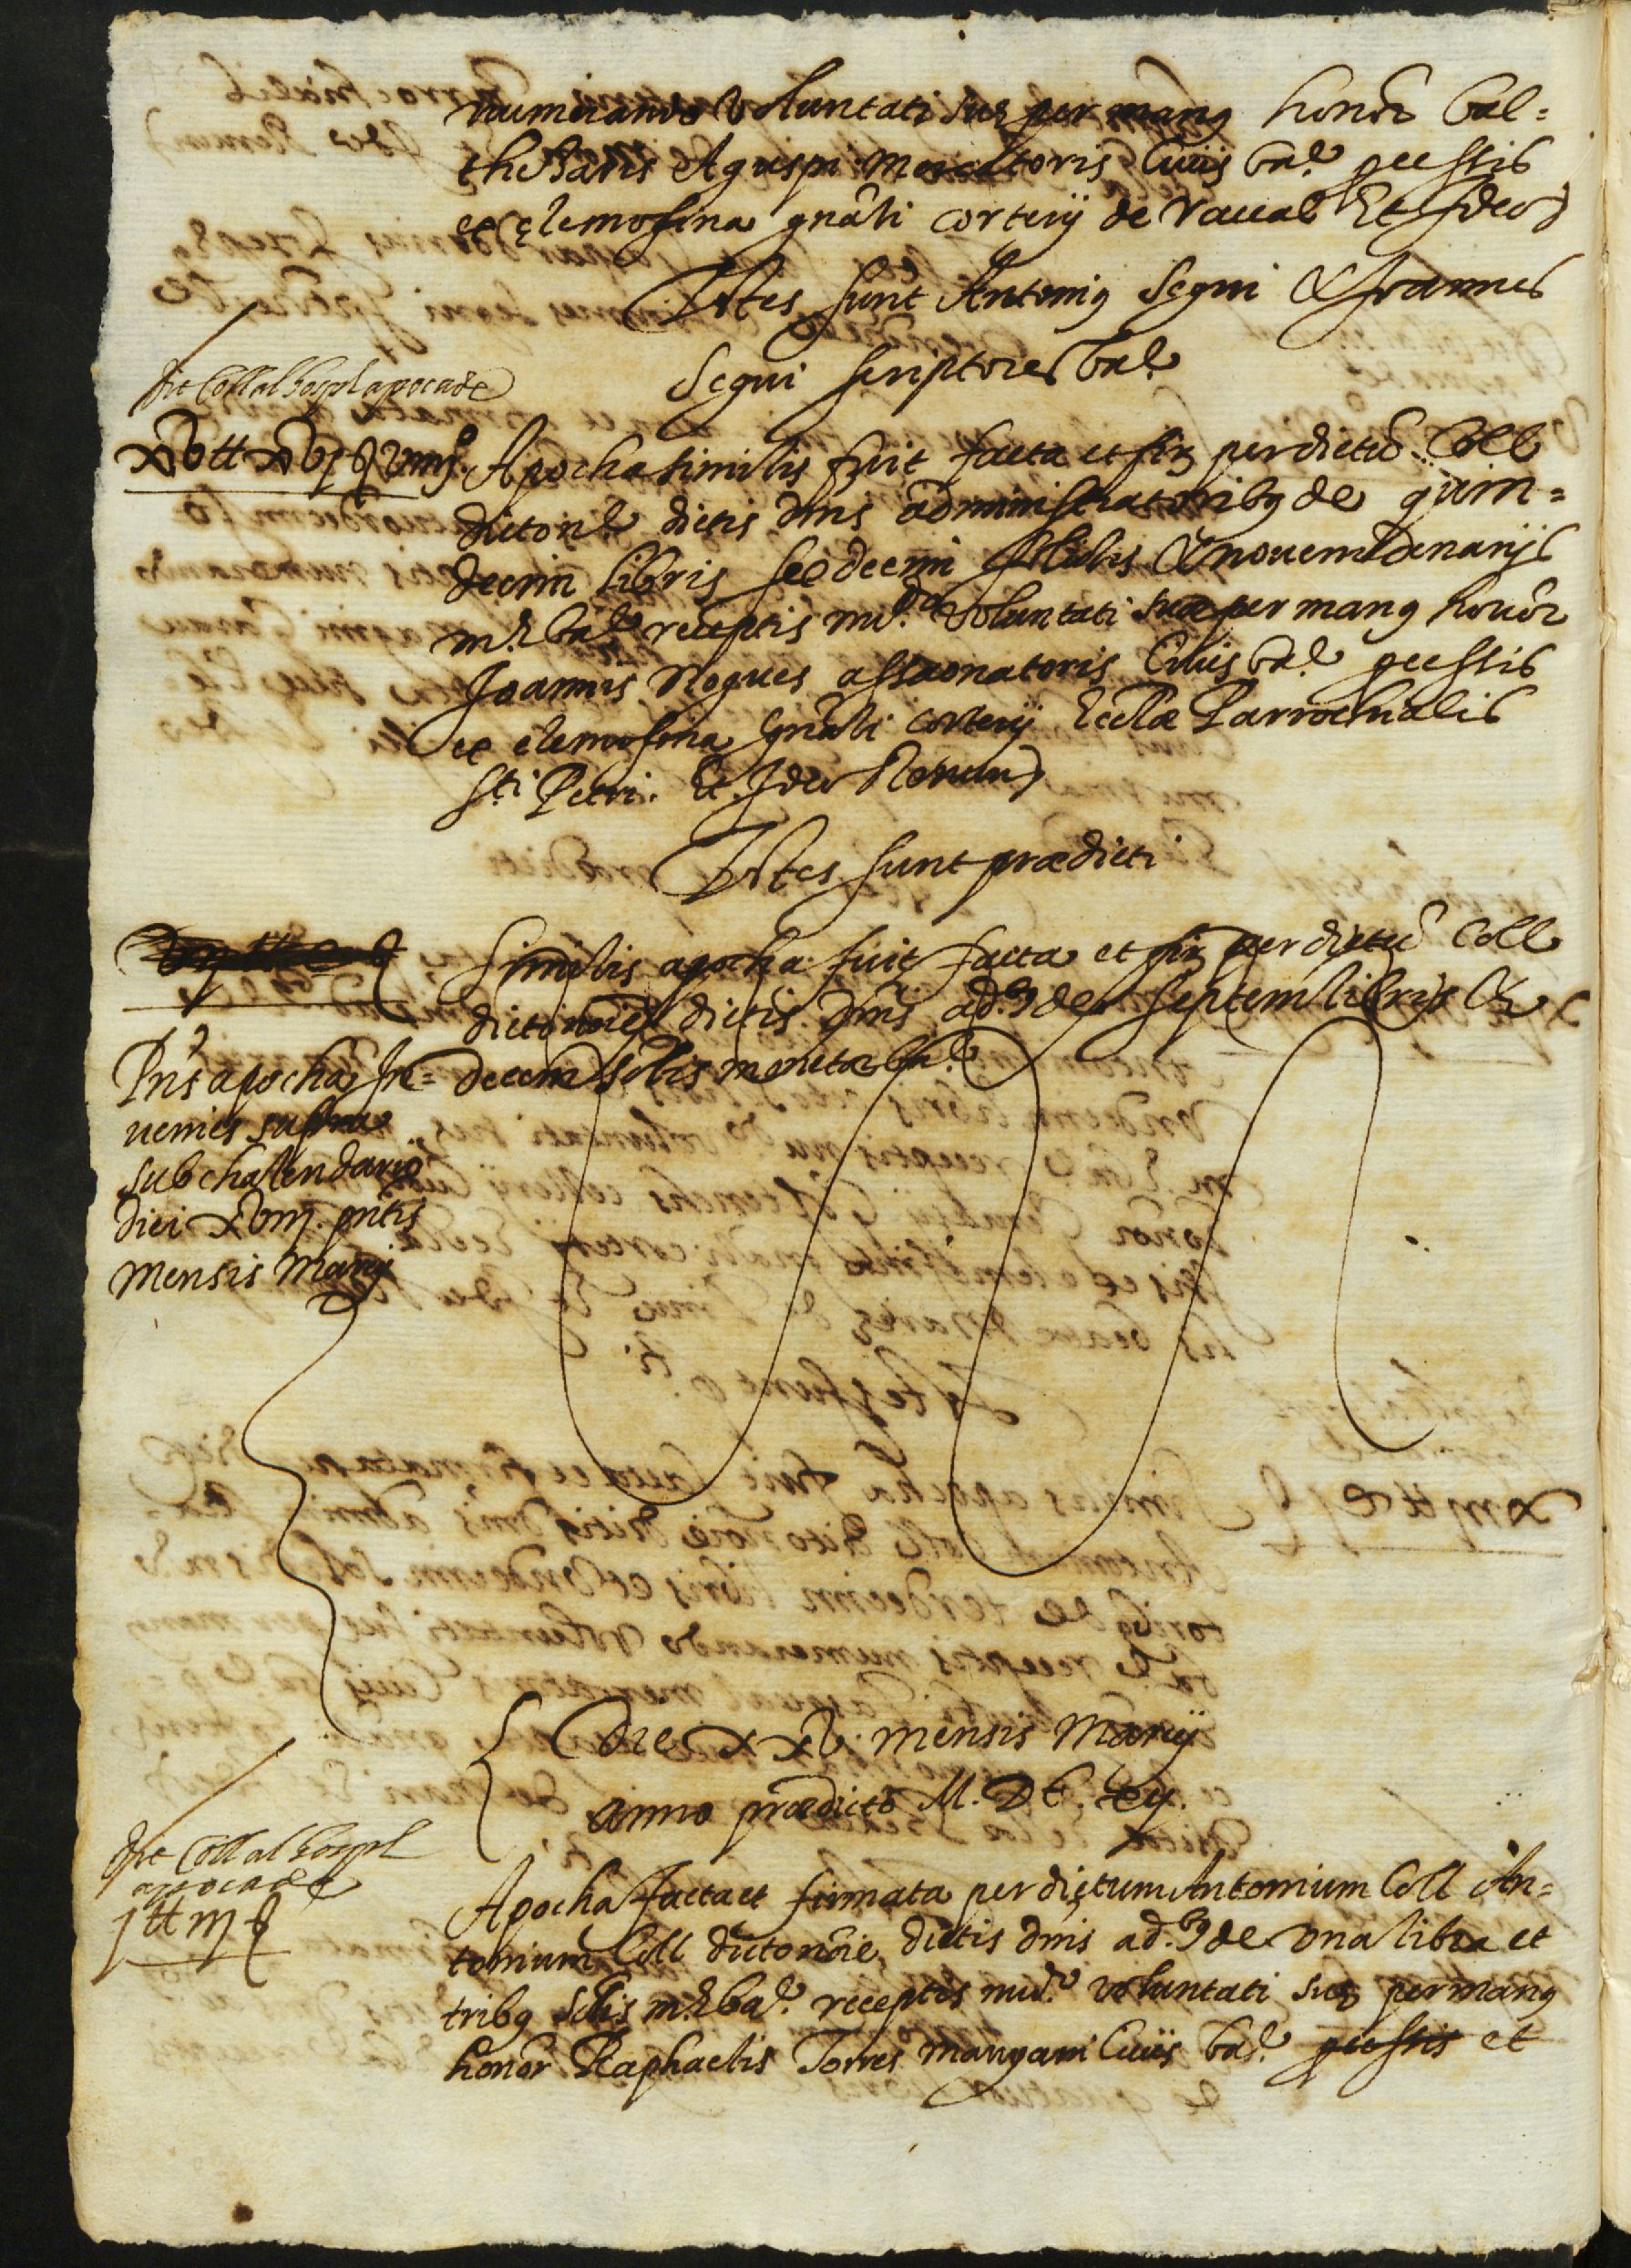 numerando voluntati suę per manꝰ honor. bal=
thesaris Aguspi mercatoris Ciuis bar.e processis
ex ęlemosina gnāli corterij de raual Et Ideo
Testes sunt Antonius Seguí & Joannes
Seguí scriptores bar.e
fre Coll al hospl apoca de
xv ₶ xvj ß viiij. Apocha similis fuit facta et fir. per dictū Coll
dicto nē dictis dnis administratoribꝰ de quin=
decim libris sexdecim solidis & nouem denarijs
m.e bar.e receptis nu.do voluntati suæ per manꝰ honor
Joannis Nogues assaonatoris Ciuis bar.e processis
ex elemosina gnāli corterij Eccłæ Parrochialis
Sti Petri. Et Ideo Renun
Testes sunt prædicti
Similis apocha fuit facta et fir. per dictū Coll
dicto noie dictis dnis ad.bꝰ de septem libris &
decem solis monetæ bar.e
Pns apocha In=
uenies supra
sub chalendario
diei xviij. pntis
mensis Marcij
Die xxv. mensis Marcij
anno prædicto M. DC. xij.
fre Coll al hospl
apoca de
j ₶ iij ß
Apocha facta et firmata per dictum Antonium Coll An=
tonium Coll dicto noie, dictis dnis ad.bꝰ de vna libra et
tribꝰ solis m.e bar.e receptis nu.do voluntati suę per manꝰ
honor Raphaelis Torres manyani Ciuis bar.e processis et